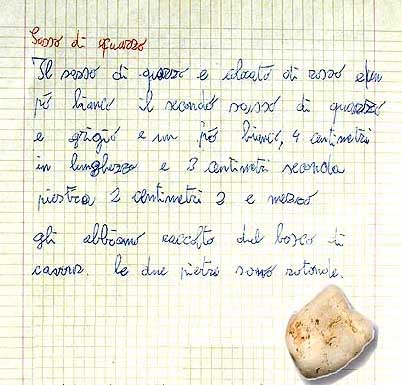 Sasso di quarzo
Il sasso di quarzo e colorato di rosso e un
pò bianco il secondo sasso di quarzo
e grigio e un pò bianco, 4 centimetri
in lunghezza e 3 centimetri seconda
piestra 2 centimetri 2 e mezzo
gli abbiamo raccolto dal bosco di
cavour. le due pietre sono rotonde.